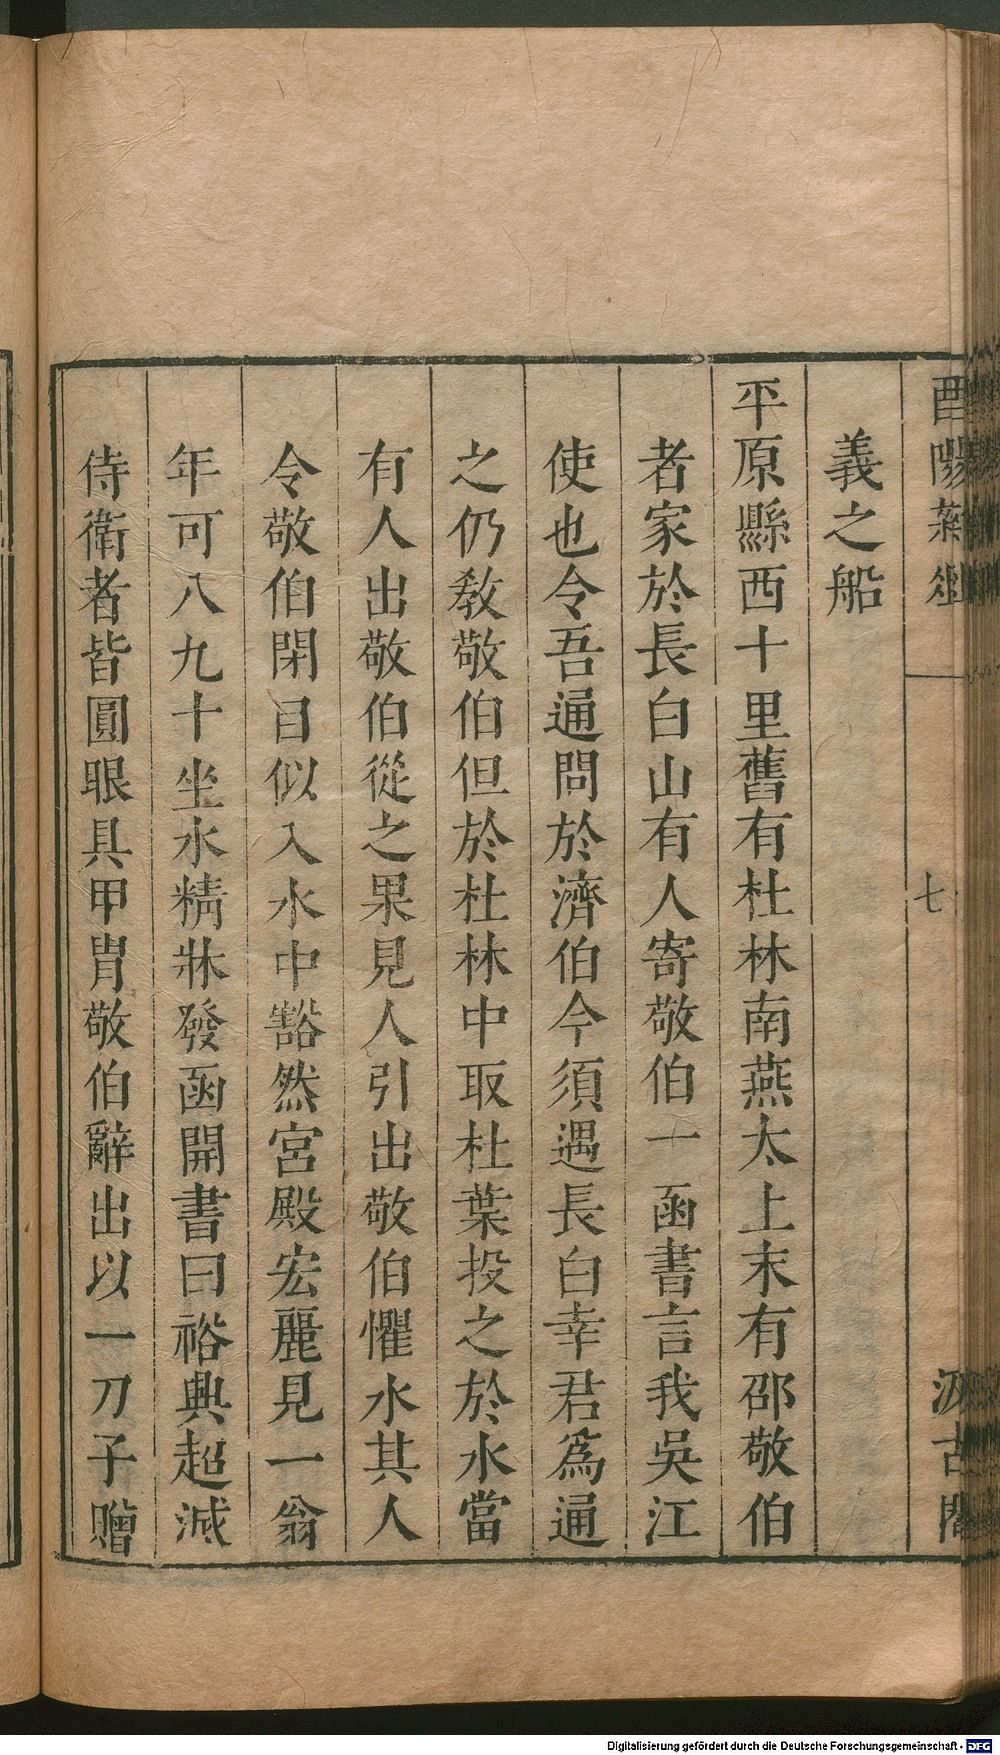 酉陽雜俎
七
汲古閣
義之船
平原縣西十里舊有杜林南燕太上末有邵敬伯
者家於長白山有人寄敬伯一函書言我吳江
使也令吾通問於濟伯今須過長白幸君爲通
之仍教敬伯但於杜林中取杜葉投之於水當
有人出敬伯從之果見人引出敬伯懼水其人
令敬伯閉目似入水中豁然宮殿宏麗見一翁
年可八九十坐水精牀發函開書曰裕興超滅
侍衛者皆圓眼具甲胄敬伯辭出以一刀子贈
Digitalisierung gefördert durch die Deutsche Forschungsgemeinschaft - DFG